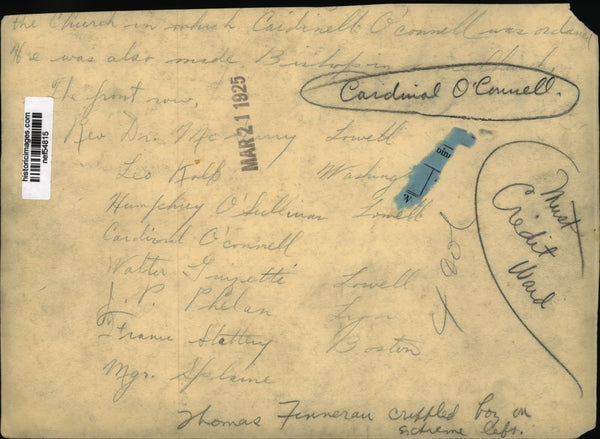 the Church in which Cardinell O'Connell was ordained
He was also made Bishop in
The front row,
Cardinal O'Connell.
MAR 21 1925
historicimages.com
nef54815
Rev. Dr. Lowell
Leo Kolb
Humphrey O'Sullivan Lowell
Cardinal O'connell
Walter Lowell
J. P. Phelan
Slattery Boston
Mgr. Splaine
Must
Credit
Ward
Thomas Finnerau crippled boy on
extreme left.